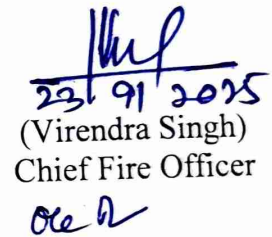 23 91 2025
(Virendra Singh)
Chief Fire Officer